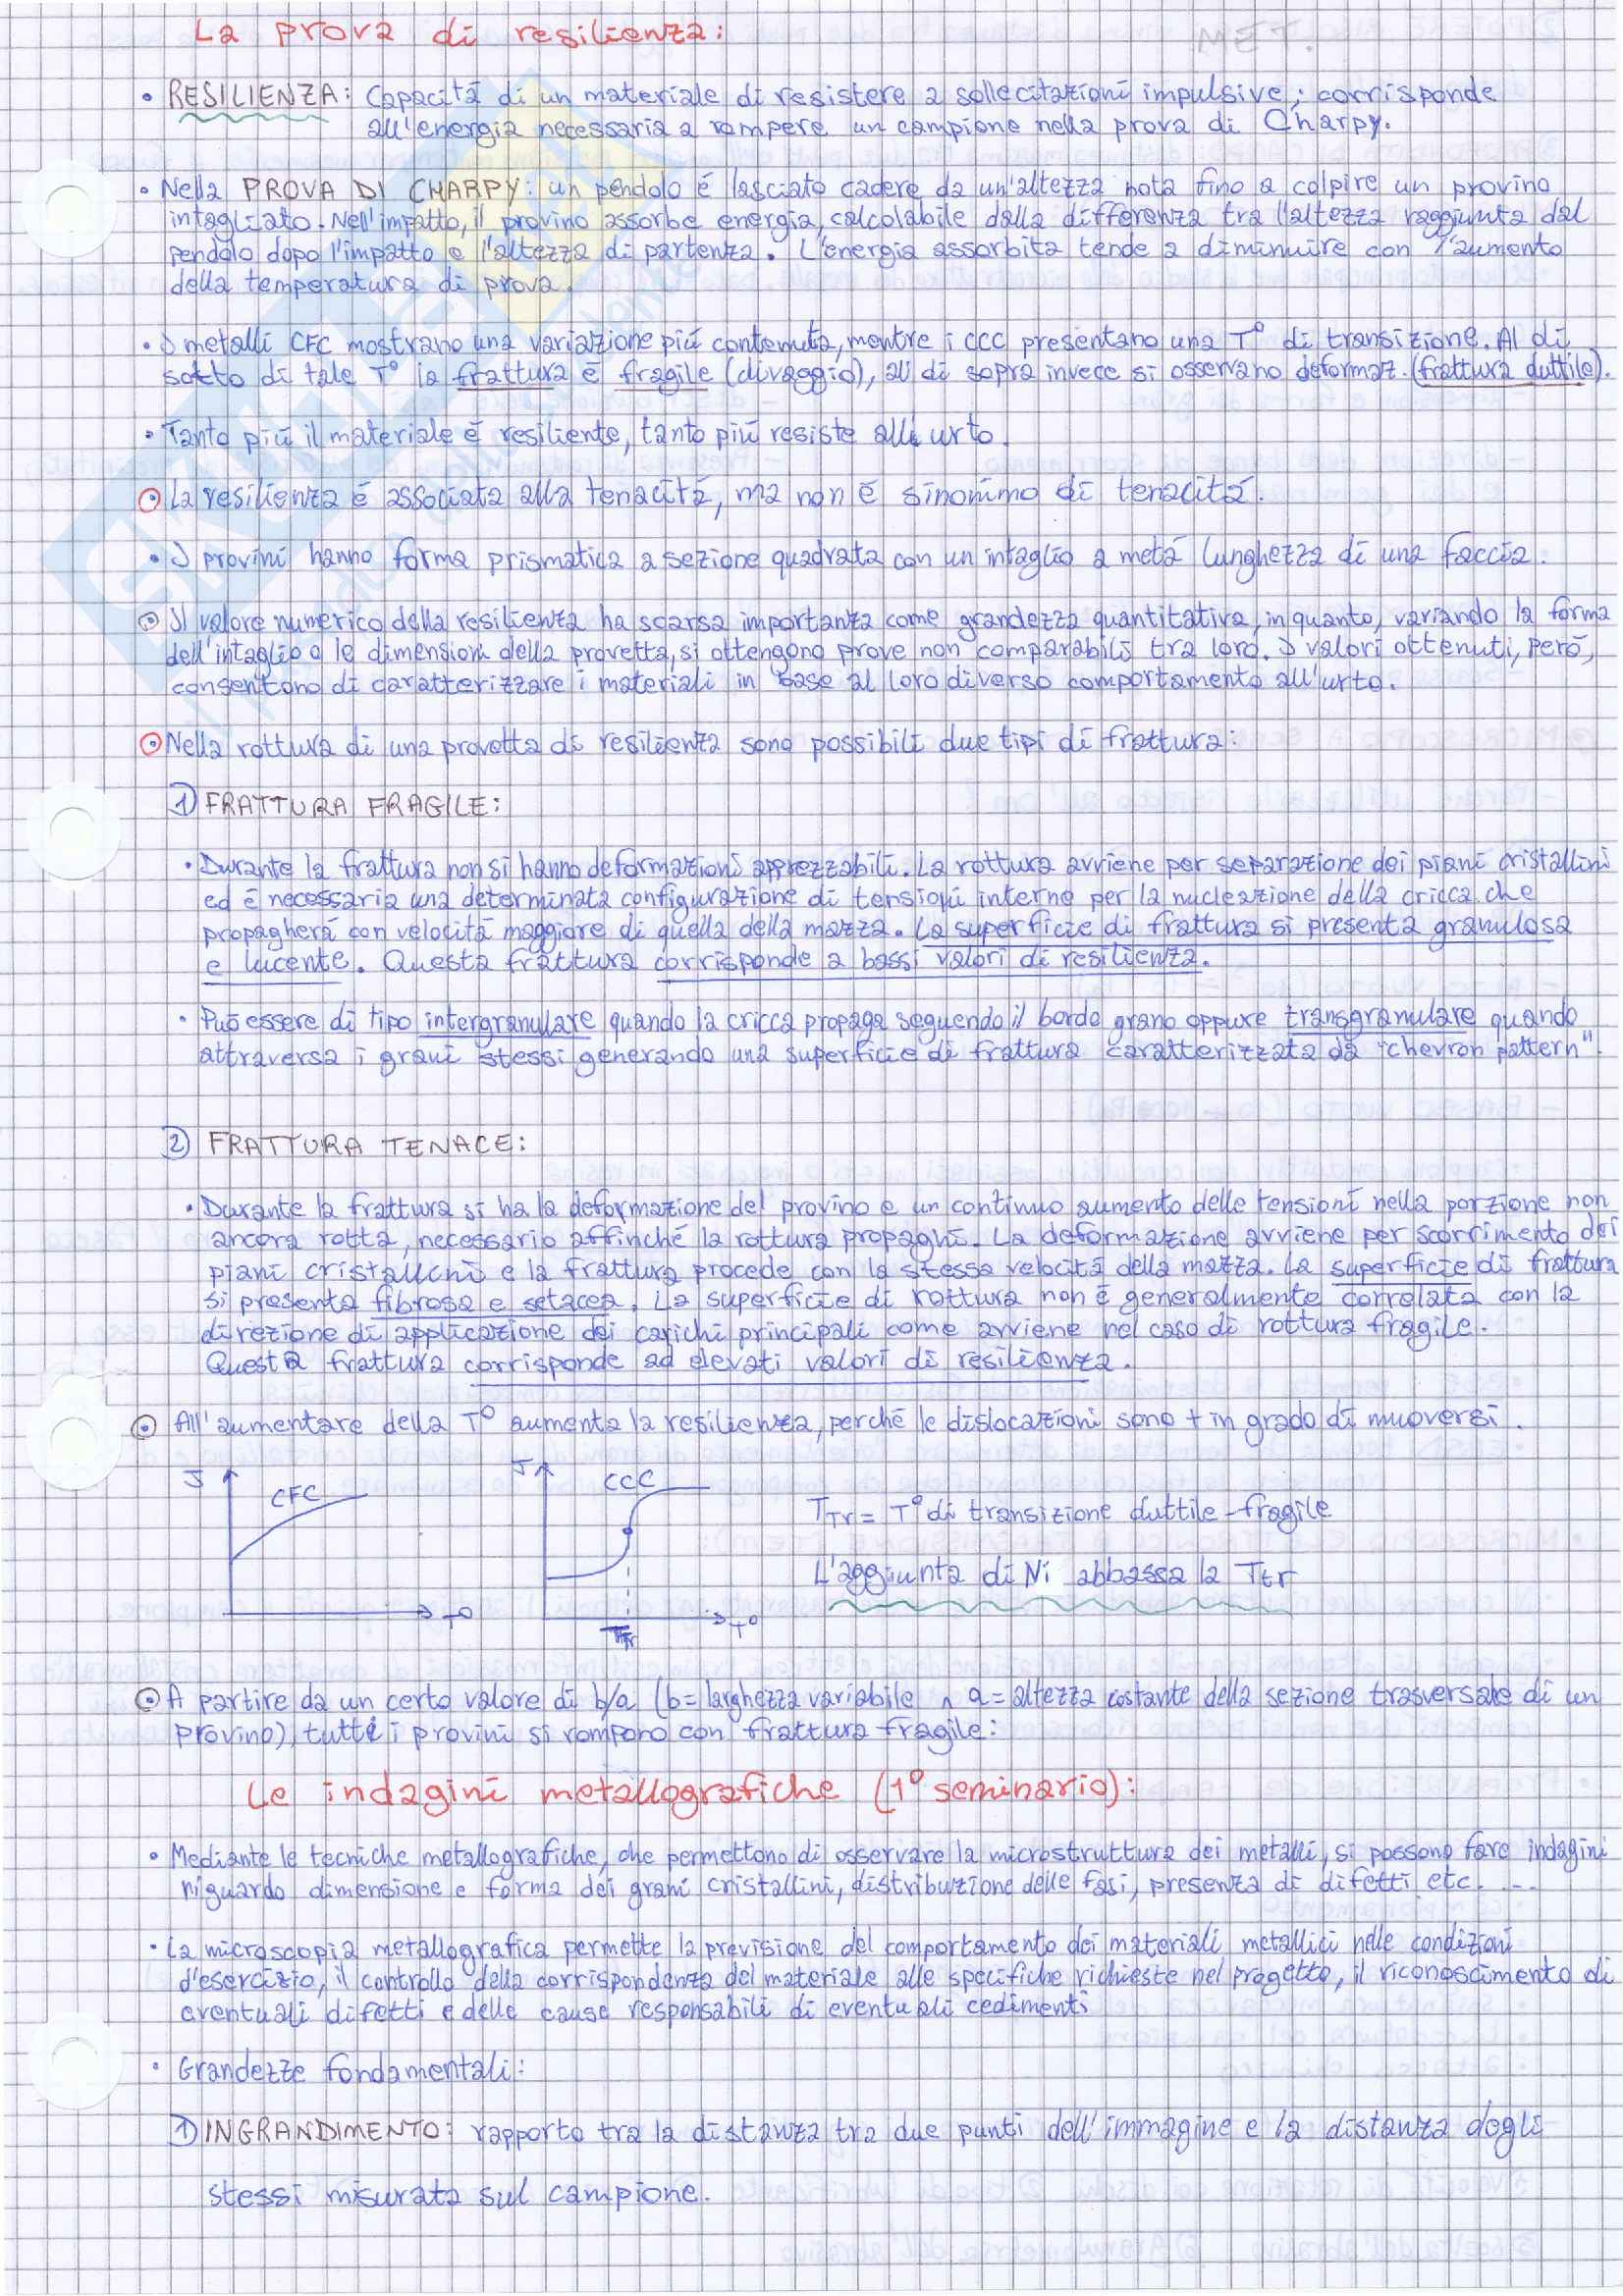 La prova di resilienza:
• RESILIENZA: Capacitá di un materiale di resistere a sollecitazioni impulsive; corrisponde
all'energia necessaria a rompere un campione nella prova di Charpy.
• Nella PROVA DI CHARPY: un pendolo é lasciato cadere da un'altezza nota fino a colpire un provino
intagliato. Nell'impatto, il provino assorbe energia, calcolabile dalla differenza tra l'altezza raggiunta dal
pendolo dopo l'impatto e l'altezza di partenza. L'energia assorbita tende a diminuire con l'aumento
della temperatura di prova.
• I metalli CFC mostrano una variazione piú contenuta, mentre i CCC presentano una T° di transizione. Al di
sotto di tale T° la frattura é fragile (clivaggio), al di sopra invece si osservano deformaz. (frattura duttile).
• Tanto piú il materiale é resiliente, tanto piú resiste all'urto.
La resilienza é associata alla tenacitá, ma non é sinonimo di tenacitá.
• I provini hanno forma prismatica a sezione quadrata con un intaglio a metá lunghezza di una faccia.
Il valore numerico della resilienza ha scarsa importanza come grandezza quantitativa, in quanto, variando la forma
dell'intaglio o le dimensioni della provetta, si ottengono prove non comparabili tra loro. I valori ottenuti, peró,
consentono di caratterizzare i materiali in base al loro diverso comportamento all'urto.
Nella rottura di una provetta di resilienza sono possibili due tipi di frattura:
1) FRATTURA FRAGILE:
• Durante la frattura non si hanno deformazioni apprezzabili. La rottura avviene per separazione dei piani cristallini
ed é necessaria una determinata configurazione di tensioni interne per la nucleazione della cricca che
propagherá con velocitá maggiore di quella della mazza. La superficie di frattura si presenta granulosa
e lucente. Questa frattura corrisponde a bassi valori di resilienza.
• Puó essere di tipo intergranulare quando la cricca propaga seguendo il bordo grano oppure transgranulare quando
attraversa i grani stessi generando una superficie di frattura caratterizzata da "chevron pattern".
2) FRATTURA TENACE:
• Durante la frattura si ha la deformazione del provino e un continuo aumento delle tensioni nella porzione non
ancora rotta, necessario affinché la rottura propaghi. La deformazione avviene per scorrimento dei
piani cristallini e la frattura procede con la stessa velocitá della mazza. La superficie di frattura
si presenta fibrosa e setacea. La superficie di rottura non é generalmente correlata con la
direzione di applicazione dei carichi principali come avviene nel caso di rottura fragile.
Questa frattura corrisponde ad elevati valori di resilienza.
All'aumentare della T° aumenta la resilienza, perché le dislocazioni sono + in grado di muoversi.
J CFC T°
J CCC T° TTr
TTr = T° di transizione duttile-fragile
L'aggiunta di Ni abbassa la Ttr
A partire da un certo valore di b/a (b=larghezza variabile ∧ a=altezza costante della sezione trasversale di un
provino), tutti i provini si rompono con frattura fragile:
Le indagini metallografiche (1° seminario):
• Mediante le tecniche metallografiche, che permettono di osservare la microstruttura dei metalli, si possono fare indagini
riguardo dimensione e forma dei grani cristallini, distribuzione delle fasi, presenza di difetti etc. ...
• La microscopia metallografica permette la previsione del comportamento dei materiali metallici nelle condizioni
d'esercizio, il controllo della corrispondenza del materiale alle specifiche richieste nel progetto, il riconoscimento di
eventuali difetti e delle cause responsabili di eventuali cedimenti
• Grandezze fondamentali:
1) INGRANDIMENTO: rapporto tra la distanza tra due punti dell'immagine e la distanza degli
stessi misurata sul campione.